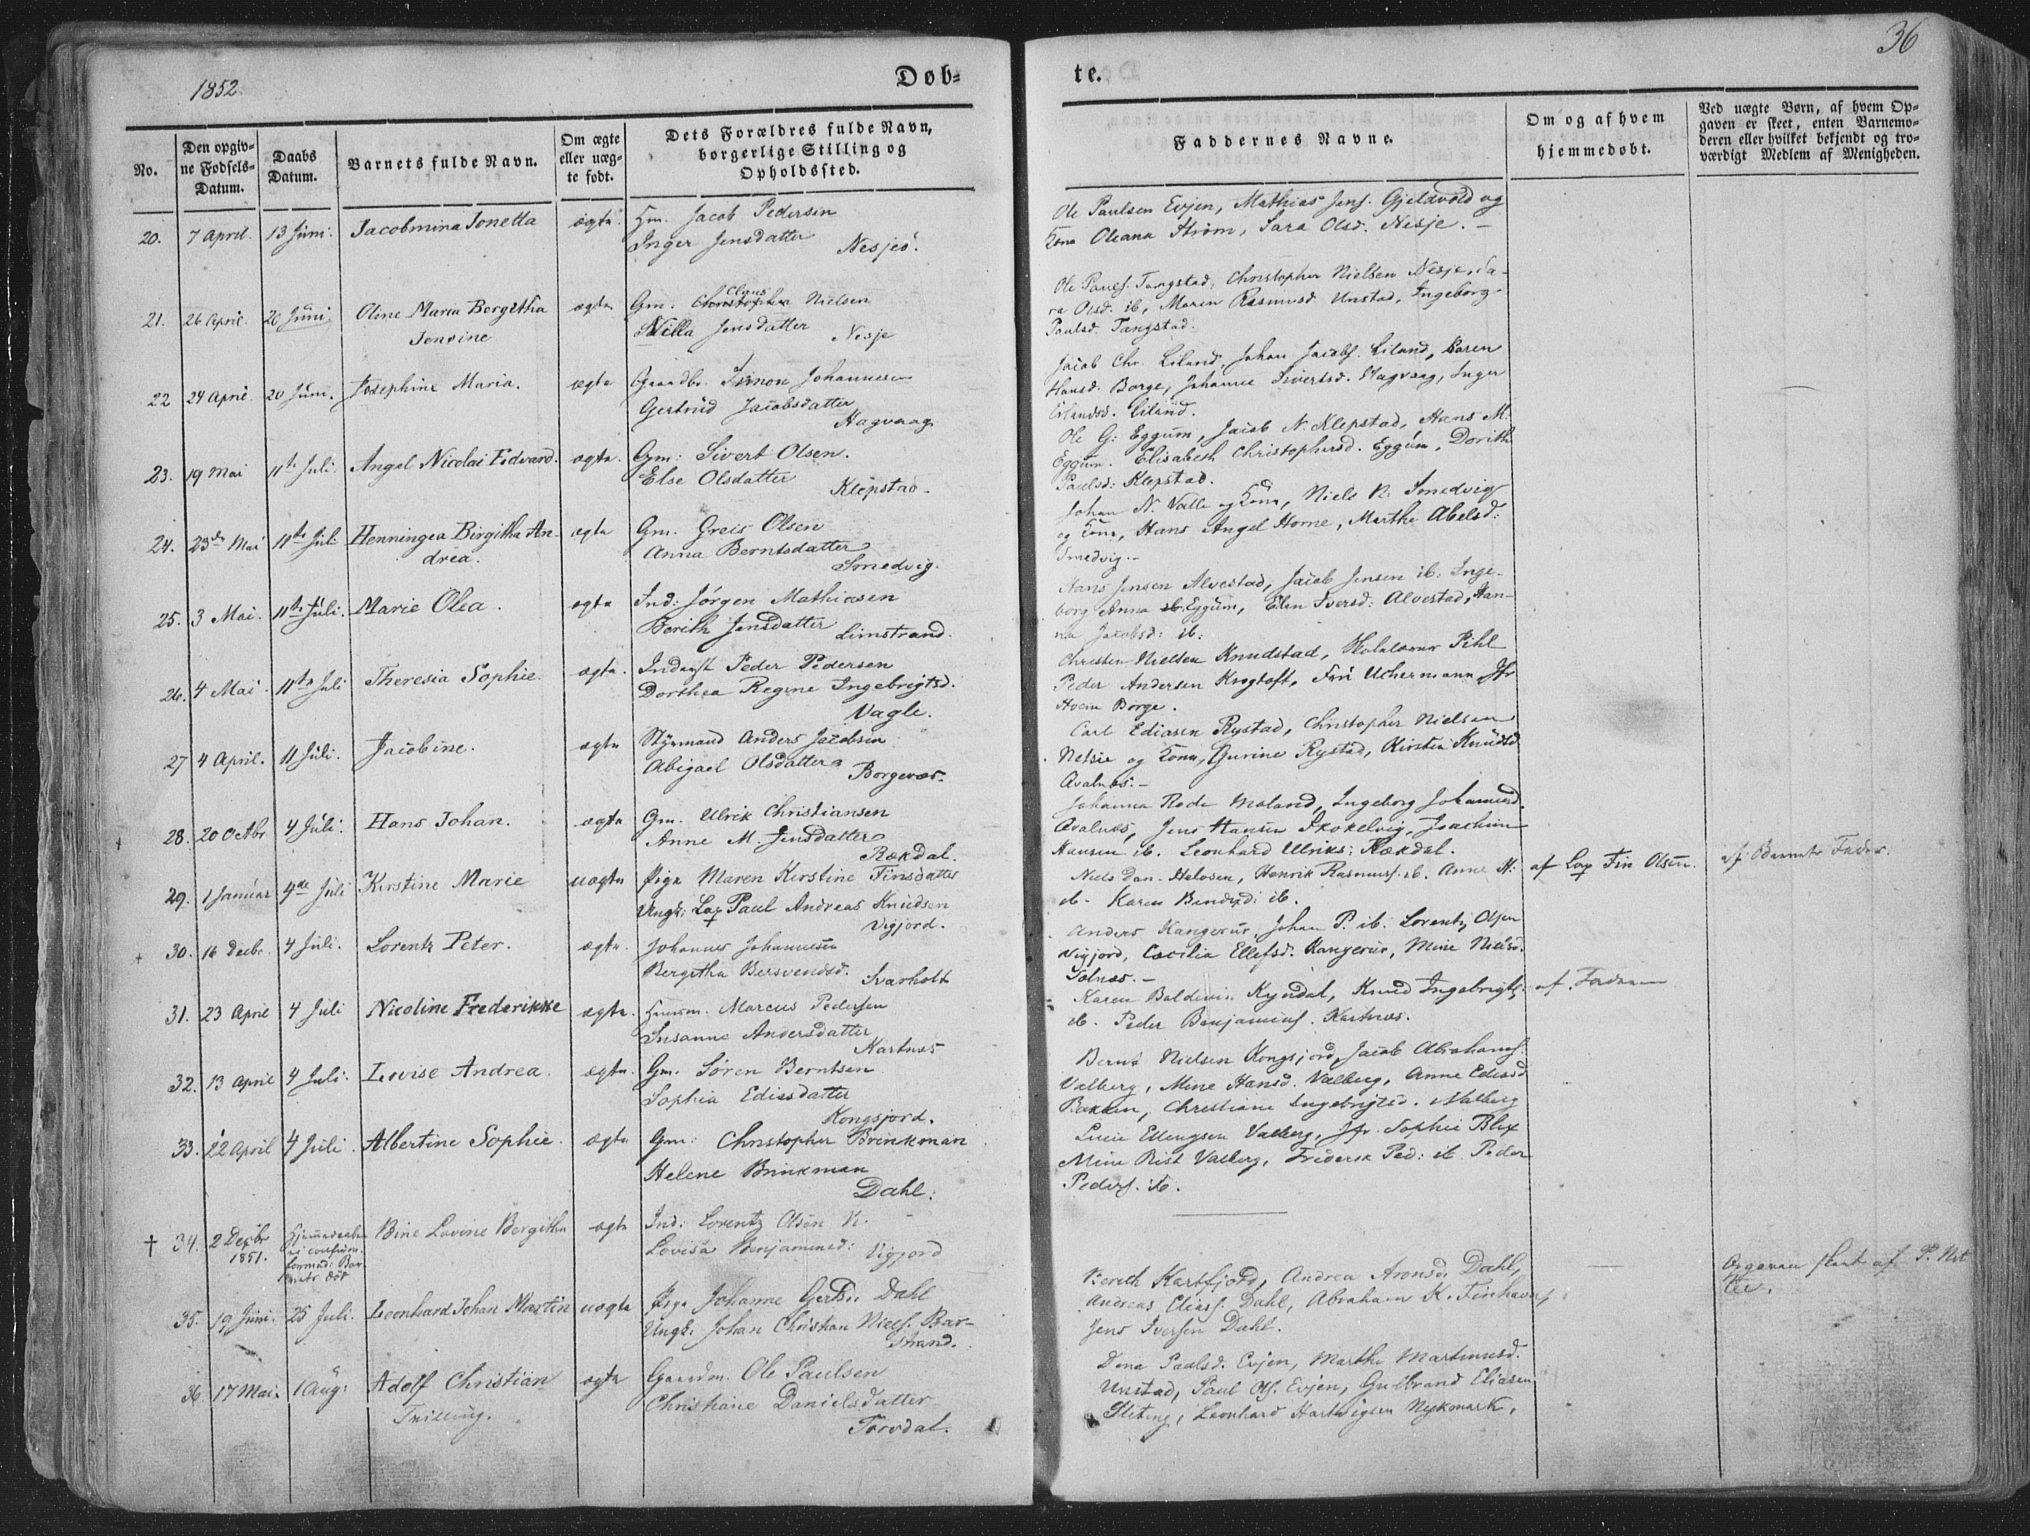 1852
Døb=
te.
36
No.
Den opgiv-
ne Fødsels-
Datum.
Daabs
Datum.
Barnets fulde Navn.
Om ægte
eller uæg-
te født.
Dets Forældres fulde Navn,
borgerlige Stilling og
Opholdssted.
Faddernes Navne.
Om og af hvem
hjemmedøbt.
Ved uægte Børn, af hvem Op-
gaven er skeet, enten Barnemo-
deren eller hvilket bekjendt og tro-
værdigt Medlem af Menigheden.
20. 7 April. 13 Juni. Jacobmina Jonetta ægte. Gm. Jacob Pedersen
Inger Jensdatter
Nesjeó.
Ole Paulsen Evjen, Mathias Jens. Gjeldvold og
Kone Oleana Strøm, Sara Olsd. Nesje. -
21. 26 April. 20 Juni Oline Maria Bergitha
Jenvine
ægte Gm. Claus Nielsen
Nilla Jensdatter
Nesje
Ole Pauls. Tangstad, Christopher Nielsen Nesje, Sa-
ra Olsd. ib, Maren Rasmusd. Unstad, Ingeborg
Paulsd. Tangstad.
22 24 April. 20 Juni. Josephine Maria. ægte Gaardbr. Simon Johannesen
Gertrud Jacobsdatter
Hagvaag
Jacob Chr. Liland, Johan Jacobs. Liland, Karen
Hansd. Borge, Johanne Sivertsd. Hagvaag, Inger
Erlandsd. Liland.
23. 19 Mai 11te Juli. Angel Nicolai Edvard. ægte. Gm: Sivert Olsen.
Else Olsdatter
Klepstad.
Ole G. Eggum, Jacob N. Klepstad, Hans M.
Eggum. Elisabeth Christophersd. Eggum, Dorith
Paulsd: Klepstad.
24. 23de Mai 11te Juli Henningea Birgitha An-
drea.
ægte Gm. Greis Olsen
Anna Berntsdatter
Smedvig.
Johan N. Valle og Kone, Niels N. Smedvig
og Kone, Hans Angel Horne, Marthe Abelsd:
Smedvig.-
25. 3 Mai. 11te Juli. Marie Olea. ægte Ind: Jørgen Mathiasen
Berith Jensdatter
Limstrand.
Hans Jensen Alvestad, Jacob Jensen ib. Inge-
borg Anna Eggum, Elen Iversd: Alvestad, Han-
na Jacobsd: ib:
26. 4 Mai. 11te Juli Theresia Sophie. ægte. Inderst Peder Pedersen
Dorthea Regine Ingebrigtsd.
Vagle.
Christen Nielsen Knudstad, Pihl
Peder Andersen Krogtoft, Uchermann Jfr
Borge.
27 4 April. 11 Juli. Jacobine. ægte Styrmand Anders Jacobsen
Abigael Olsdatter
Borgevær.
Carl Ediasen Rystad, Christopher Nielsen
og Kone, Gurine Rystad, Kirstin Knudsd
28. 20 Octbr 4 Juli. Hans Johan. ægte Gm. Ulrik Christiansen
Anne M. Jensdatter
Rækdal.
Johanna Rode Moland, Ingeborg Johannesd.
Jens Hansen Skokelvig, Joachim
Hansen ib. Leonhard Ulriks: Rækdal.
29. 1 Januar 4de Juli Kirstine Marie uægte Pige Maren Kirstine Finsdatter
Ungk: Lap Paul Andreas Knudsen
Vigjord.
Niels Dan. Helosen, Henrik Rasmuss. ib. Anne H:
ib. Karen ib.
af Lap Fin Olsen. af Barnets Fader.
30. 16 Decbr 4 Juli. Lorentz Peter. ægte. Johannes Johannesen
Bergitha Bersvendsd.
Svarholt
Anders Kangerur, Johan P. ib. Lorentz Olsen
Vigjord, Cæcilia Ellefsd. Kangerur, Mine Nielsd.
31. 23 April 4 Juli Nicoline Frederikke ægte. Marcus Pedersen
Susanne Andersdatter
Kartnæs
Karen Baldevin. Kyndal, Knud Ingebrigts.
ib. Peder Benjamins. Kartnæs.
af Faderen
32. 13 April 4 Juli. Lovise Andrea. ægte. Gm. Søren Berntsen
Sophia Edisdatter
Kongsjord.
Bernt Nielsen Kongsjord, Jacob Abrahams.
Valberg, Mine Hansd. Valberg, Anne Ediasd
Bakken, Christiane Ingebrigtsd. Malberg
33. 22 April 4 Juli. Albertine Sophie. ægte Gm: Christopher Brinkman
Helene Brinkman
Dahl.
Lucie Ellingsen Valberg, Jfr. Sophie Blix
Mine Rist Valberg, Frederik Ped: ib. Peder
Peders. ib.
† 34. 2 Decbr
1851.
Bine Lovine Bergitha ægte Ind. Lorentz Olsen N.
Lovisa Benjaminsd: Vigjord
35. 19 Juni. 25 Juli. Leonhard Johan Martin uægte Pige Johanne Dahl
Ungk: Johan Christian Niels. Bar-
strand.
Berith Kartfjord, Andrea Aronsd. Dahl,
Andreas Elias. Dahl, Abraham K. Finhavn
Jens Iversen Dahl.
Opgaven skeet af P.
36 17 Mai. 1 Aug: Adolf Christian
Trilling.
ægte Gaardm. Ole Paulsen
Christiane Danielsdatter
Torvdal.
Dena Paulsd. Evjen, Marthe Martinusd.
Unstad, Paul Ols. Evjen, Gulbrand Eliasen
Leonhard Hartvigsen Nykmark.